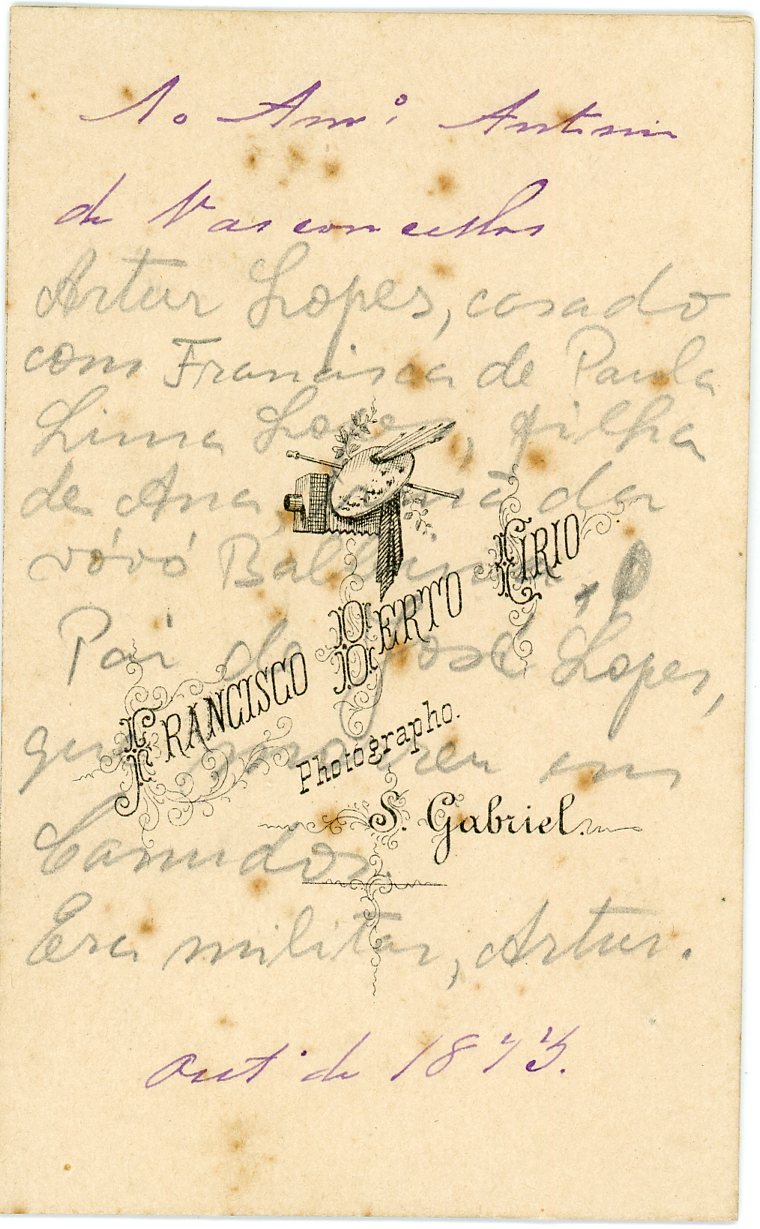 Ao Amº Antonio
de Vasconcellos
Artur Lopes, casado
com Francisca de Paula
Lima Lopes, filha
de Ana, irmã da
vóvó Balbina.
Pai de José Lopes,
que morreu em
Canudos.
Era militar, Artur.
FRANCISCO BERTO CIRIO
Photographo.
S. Gabriel.
Outº de